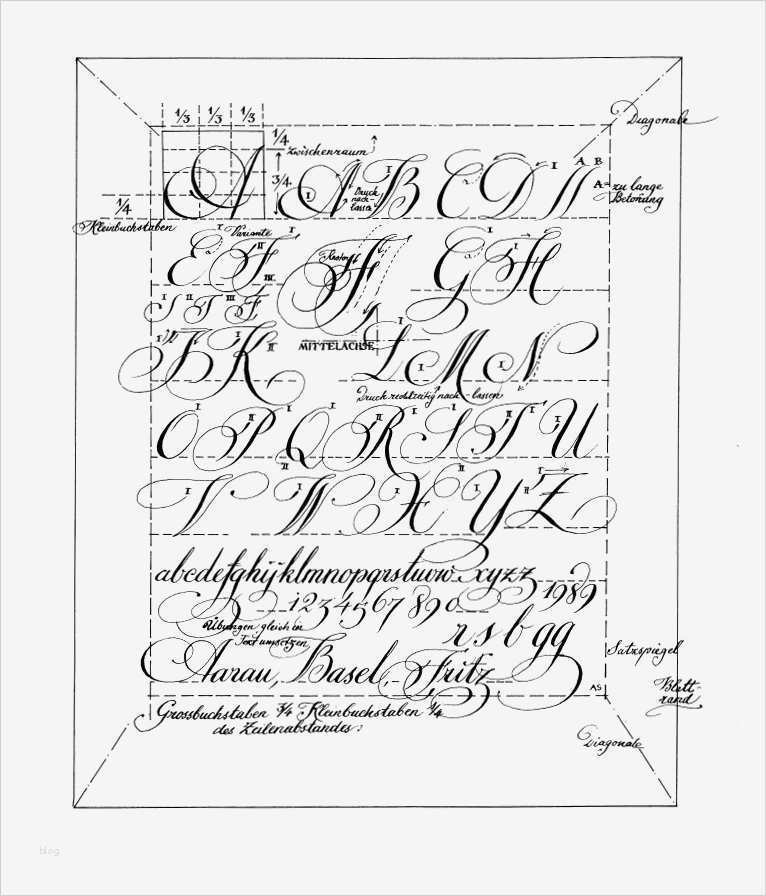 1/3 1/3 1/3
Diagonale
1/4
Zwischenraum
A A B C D N A B
3/4
Druck
nach-
lassen
A = zu lange
Betonung
1/4
Kleinbuchstaben
E F F G H
Variante
I II III
I T F
J K L M N
MITTELACHSE
Druck rechtzeitig nach-lassen
O P Q R S T U
V W X Y Z
abcdefghijklmnopqrstuvw xyzz
1234567890 1989
Übungen gleich in
Text umsetzen
r s b gg
Satzspiegel
Aarau, Basel, Fritz
AS
Blatt-
rand
Grossbuchstaben 3/4 Kleinbuchstaben 1/4
des Zeilenabstandes!
Diagonale
blog